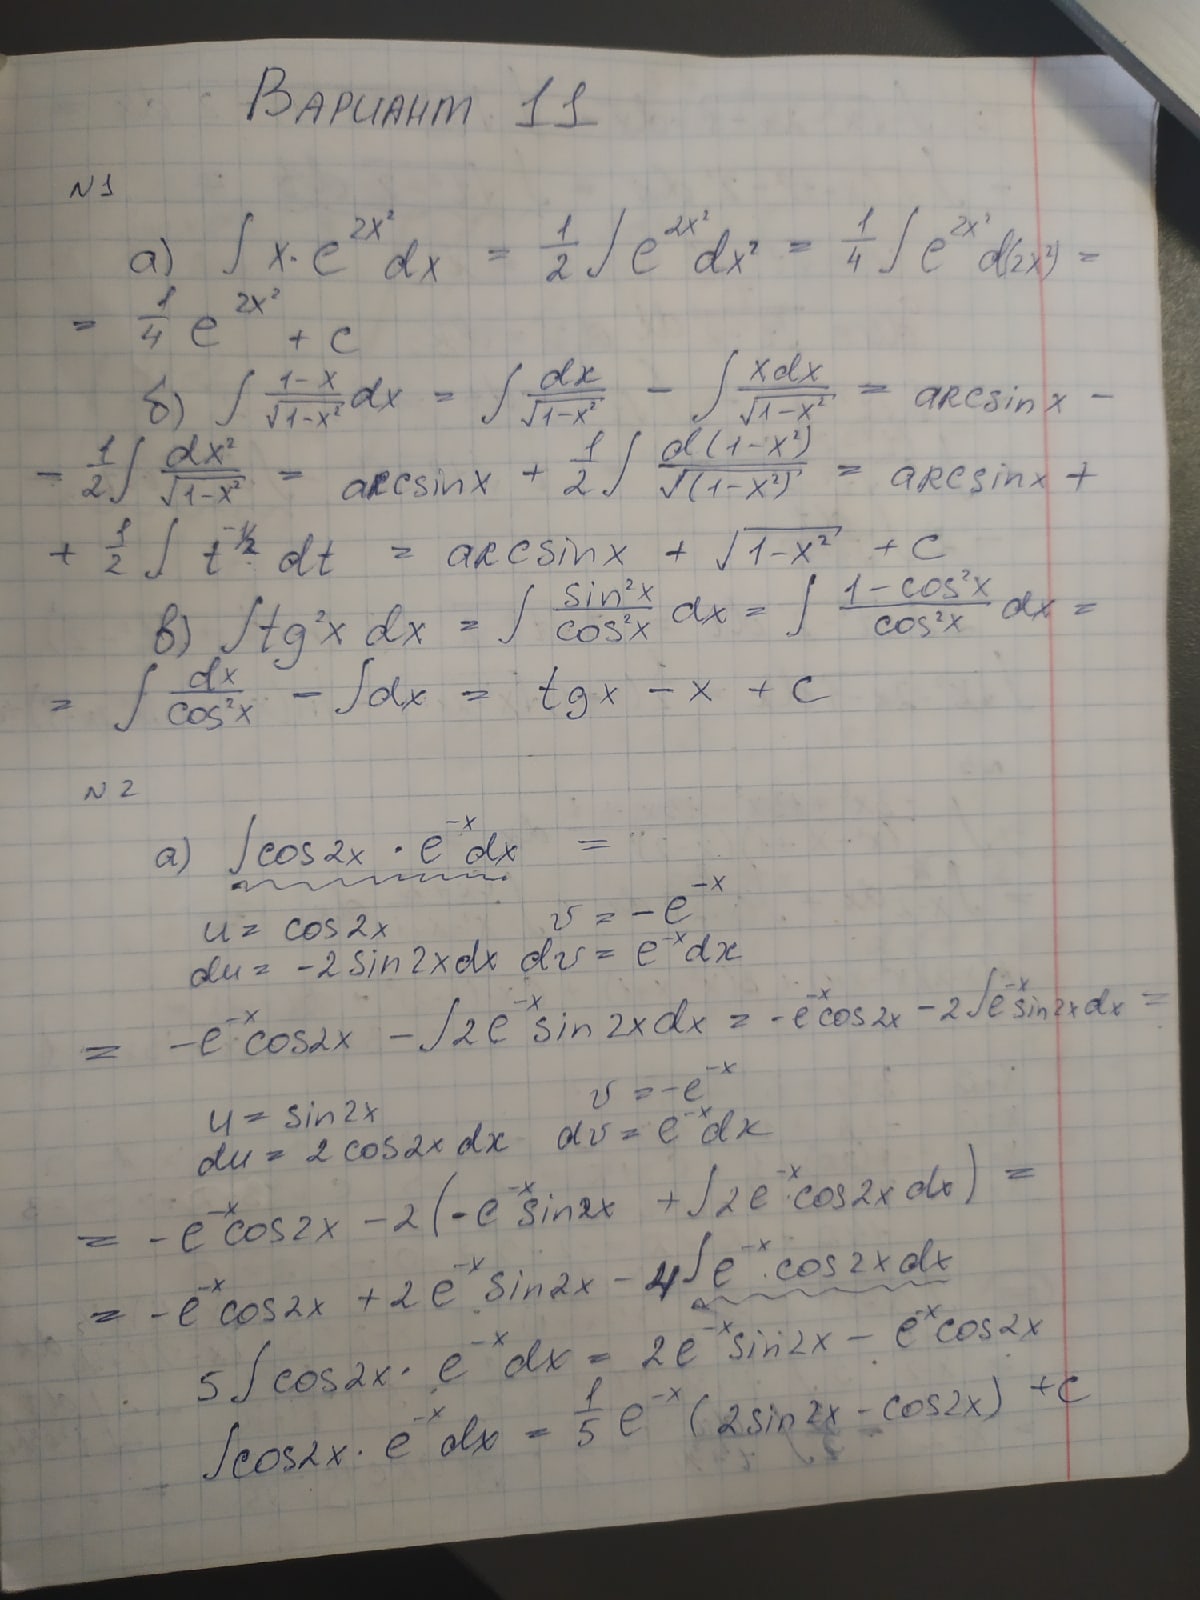 Вариант 11
N1
а) ∫ x·e^{2x²} dx = 1/2 ∫ e^{2x²} dx² = 1/4 ∫ e^{2x²} d(2x²) =
= 1/4 e^{2x²} + c
б) ∫ (1-x)/√(1-x²) dx = ∫ dx/√(1-x²) - ∫ xdx/√(1-x²) = arcsin x -
- 1/2 ∫ dx²/√(1-x²) = arcsin x + 1/2 ∫ d(1-x²)/√((1-x²)) = arcsin x +
+ 1/2 ∫ t^{-1/2} dt = arcsin x + √(1-x²) + c
в) ∫ tg²x dx = ∫ sin²x/cos²x dx = ∫ (1-cos²x)/cos²x dx =
= ∫ dx/cos²x - ∫ dx = tg x - x + c
N2
а) ∫ cos2x · e^{-x} dx =
u = cos2x v = -e^{-x}
du = -2sin2xdx dv = e^{-x}dx
= -e^{-x}cos2x - ∫ 2e^{-x} sin2xdx = -e^{-x}cos2x - 2∫ e^{-x}sin2xdx =
u = sin2x v = -e^{-x}
du = 2cos2x dx dv = e^{-x}dx
= -e^{-x}cos2x - 2(-e^{-x}sin2x + ∫ 2e^{-x}cos2x dx) =
= -e^{-x}cos2x + 2e^{-x} sin2x - 4∫ e^{-x}·cos2xdx
5∫ cos2x· e^{-x}dx = 2e^{-x}sin2x - e^{-x}cos2x
∫ cos2x· e^{-x}dx = 1/5 e^{-x} (2sin2x - cos2x) + c